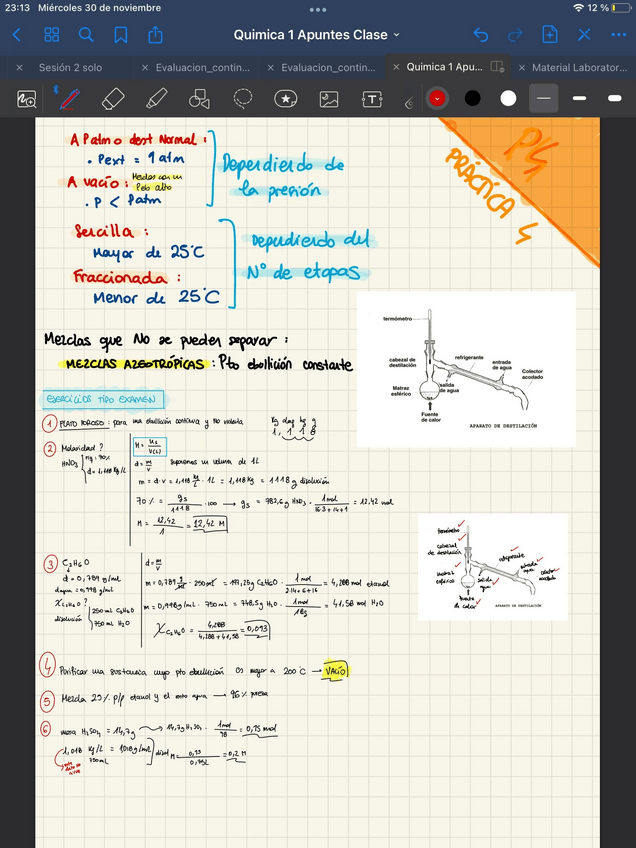 23:13 Miércoles 30 de noviembre
12 %
Quimica 1 Apuntes Clase
Sesión 2 solo
Evaluacion_contin...
Evaluacion_contin...
Quimica 1 Apu...
Material Laborator...
P4
PRÁCTICA 4
A Patm o dest Normal :
. Pext = 1 atm
A vacío : Mezclas con un Pebo alto
. P < Patm
Dependiendo de
la presión
Sencilla :
Mayor de 25°C
Fraccionada :
Menor de 25°C
Dependiendo del
Nº de etapas
termómetro
cabezal de destilación
refrigerante
entrada de agua
Colector acodado
Matraz esférico
salida de agua
Fuente de calor
APARATO DE DESTILACIÓN
Mezclas que No se pueden separar :
MEZCLAS AZEOTRÓPICAS : Pto ebullición constante
EJERCICIOS TIPO EXAMEN
1 PLATO POROSO : para una ebullición continua y No violenta
Kg dag hg g
1, 1 1 8
2 Molaridad ?
HNO3
d = 1,118 Kg/L
M = ns / V(L)
d = m/v suponemos un volumen de 1L
m = d · v = 1,118 Kg/L · 1L = 1,118 Kg = 1118 g disolución
70 % = gs / 1118 · 100 → gs = 782,6 g HNO3 · 1mol / 16·3+14+1 = 12,42 mol
M = 12,42 / 1 = 12,42 M
3 C2H6O
d = 0,789 g/mL
dagua = 0,998 g/mL
χ C2H6O ?
disolución
250 mL C2H6O
750 mL H2O
d = m/v
m = 0,789 g/mL · 250 mL = 197,25 g C2H6O · 1mol / 2·14+6+16 = 4,288 mol etanol
m = 0,998 g/mL · 750 mL = 748,5 g H2O · 1mol / 18g = 41,58 mol H2O
χ C2H6O = 4,288 / 4,288 + 41,58 = 0,093
termómetro
cabezal de destilación
refrigerante
entrada agua
colector acodado
matraz esférico
salida agua
fuente de calor
APARATO DE DESTILACIÓN
4 Purificar una sustancia cuyo pto ebullición es mayor a 200°C → VACÍO
5 Mezcla 25% p/p etanol y el resto agua → 96% pureza
6 masa H2SO4 = 14,7g → 14,7g H2SO4 · 1mol / 98 = 0,15 mol
1,018 Kg/L = 1018 g/mL
750mL
disol M = 0,15 / 0,75L = 0,2 M